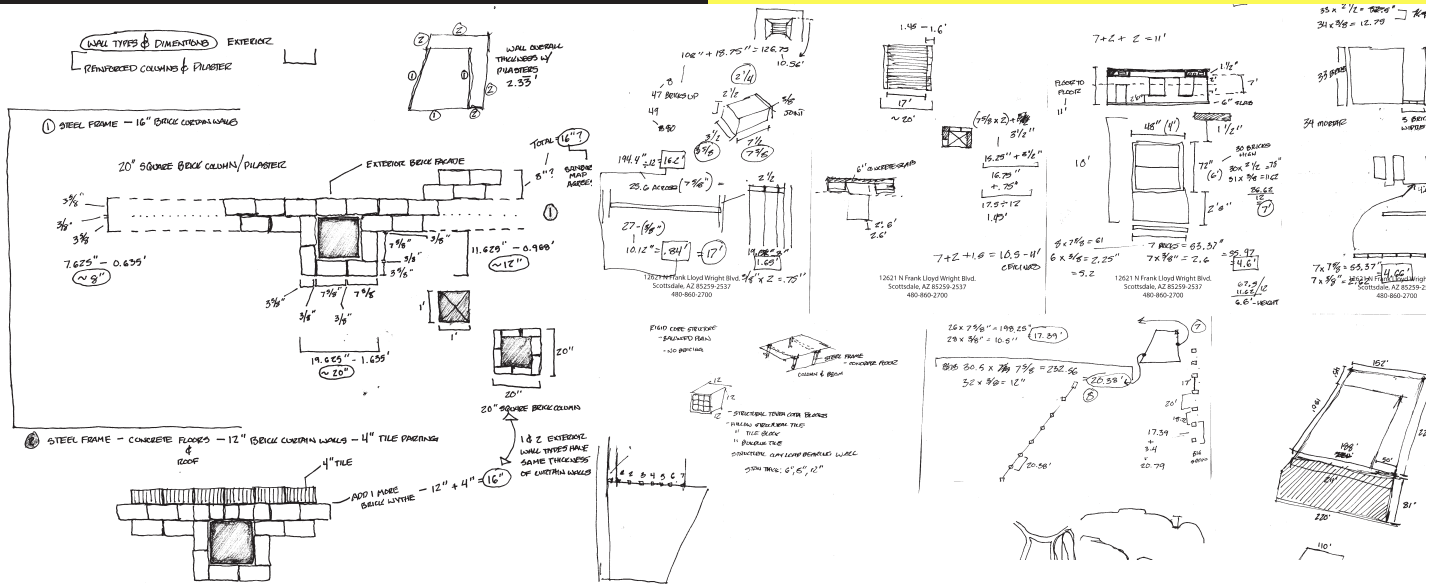 WALL TYPES & DIMENTIONS EXTERIOR
REINFORCED COLUMNS & PILASTER
2
2
2
1
1
1
2
WALL OVERALL
THICKNESS W/
PILASTERS
2.33'
1 STEEL FRAME - 16" BRICK CURTAIN WALLS
20" SQUARE BRICK COLUMN/PILASTER
EXTERIOR BRICK FACADE
TOTAL = 16"?
8"?
SANBORN
MAP
AGREE!
1
3 5/8"
3/8"
3 5/8
7.625" - 0.635'
~8"
7 5/8"
3/8"
3/8"
3 5/8"
11.625" - 0.968'
~12"
3 5/8"
7 5/8"
7 5/8
3/8"
3/8"
19.625" - 1.635'
~20"
1'
1'
20"
20"
20" SQUARE BRICK COLUMN
2 STEEL FRAME - CONCRETE FLOORS - 12" BRICK CURTAIN WALLS - 4" TILE PARTING
&
ROOF
1 & 2 EXTERIOR
WALL TYPES HAVE
SAME THICKNESS
OF CURTAIN WALLS
4" TILE
ADD 1 MORE
BRICK WYTHE - 12" + 4" = 16"
108" + 18.75" = 126.75
10.56'
8
47 BRICKS UP
49
2 1/4
2 1/2
3/8
JOINT
3 1/2
3 5/8
7 1/2
7 5/8
194.4" ÷ 12 = 16.2'
25.6 ACROSS (7 5/8") =
27 - (3/8")
10.12" = .84'
= 17'
2 1/2
1.65'
3/8" x 2 = .75"
12621 N Frank Lloyd Wright Blvd.
Scottsdale, AZ 85259-2537
480-860-2700
1.45 - 1.6'
17'
~20'
(7 5/8 x 2) +
3 1/2"
15.25" + 3 1/2"
16.75"
+ .75"
17.5 ÷ 12
1.45'
6" CONCRETE SLABS
2'. 6'
2.6'
7 + 2 + 1.5 = 10.5 - 11'
CEILINGS
12621 N Frank Lloyd Wright Blvd.
Scottsdale, AZ 85259-2537
480-860-2700
7 + 2 + 2 = 11'
FLOOR TO
FLOOR
11'
1 1/2"
7'
2'6"
6" SLAB
48" (4')
1 1/2"
10'
72"
(6')
30 BRICKS
HIGH
30 x 2 1/2 = 75"
31 x 3/8 = 11.62
86.62
12
7'
2'8"
8 x 7 5/8 = 61
6 x 3/8 = 2.25"
= 5.2
7 BRICKS = 53.37"
7 x 3/8" = 2.6
= 55.97
= 4.6'
12621 N Frank Lloyd Wright Blvd.
Scottsdale, AZ 85259-2537
480-860-2700
67.5
11.62 /12
6.6' - HEIGHT
33 x 2 1/2 =
34 x 3/8 = 12.75
34 MORTAR
7 x 7 5/8 = 53.37"
7 x 3/8" = 2.62
4.66'
12621 N Frank Lloyd Wrigh
Scottsdale, AZ 85259-2
480-860-2700
RIGID CORE STRUCTURE
- BALLOONED PLAN
- NO BRACING
STEEL FRAME
- CONCRETE FLOOR
COLUMN & BEAM
12
12
12
- STRUCTURAL TERRA COTTA BLOCKS
- HOLLOW STRUCTURAL TILE
" TILE BLOCK
" BUILDING TILE
STRUCTURAL CLAY LOAD BEARING WALL
5TON THICK: 6", 8", 12"
1 2 3 4 5 6 7
26 x 7 5/8" = 198.25"
28 x 3/8" = 10.5"
17.39'
30.5 x 7 5/8 = 232.56
32 x 3/8 = 12"
= 20.38'
8
20.38'
7
17'
20'
17.39
+
3.4
20.79
152'
190'
198'
50'
211'
81'
220'
110'